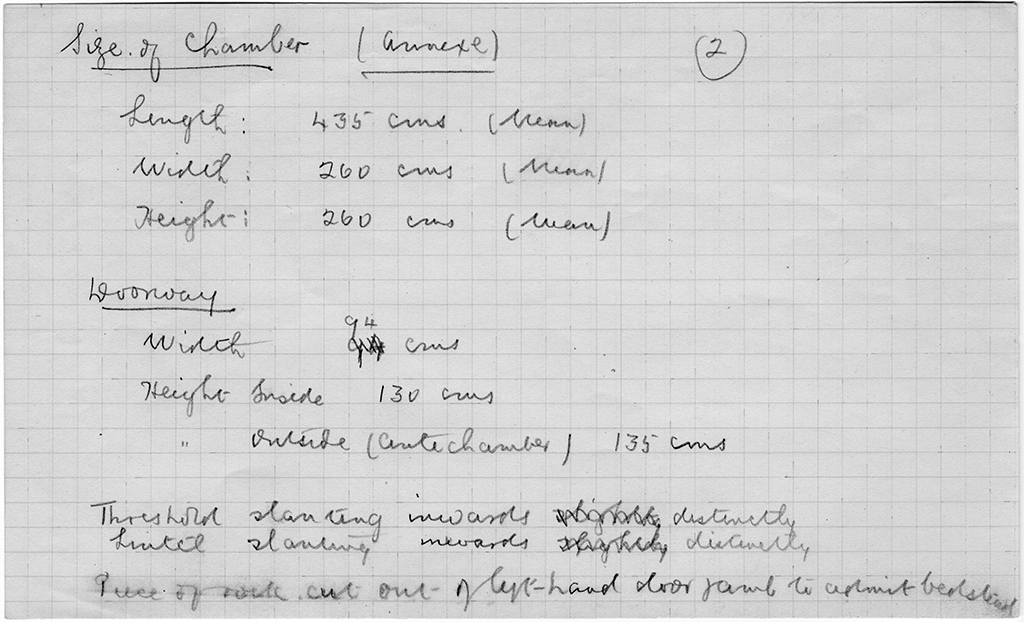 Size of Chamber (Annexe) (2)
Length: 435 cms. (Mean)
Width: 260 cms (Mean)
Height: 260 cms (Mean)
Doorway
94
Width cms
Height Inside 130 cms
" Outside (Antechamber) 135 cms
Threshold slanting inwards slightly distinctly
Lintel slanting inwards slightly distinctly
Piece of rock cut out of left-hand door jamb to admit bedstead